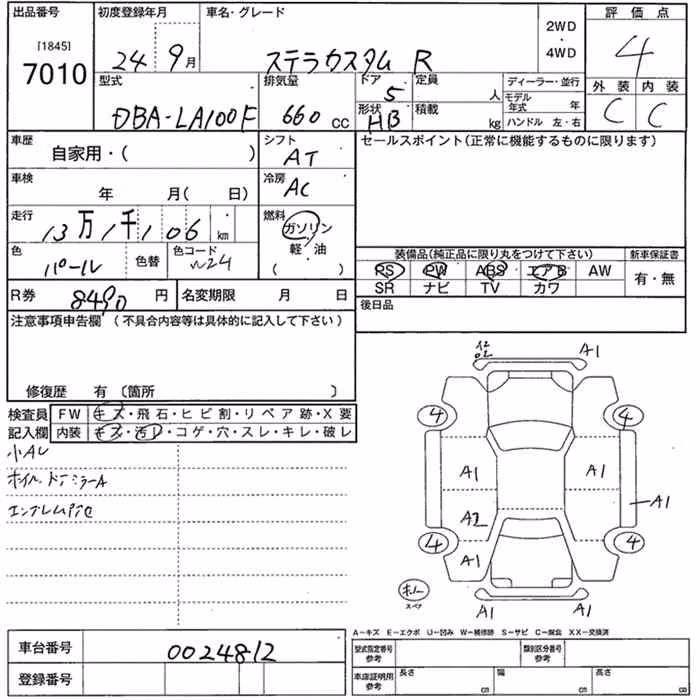 出品番号 初度登録年月 車名・グレード 2WD ・ 4WD 評価点
[1845]
7010 24 9月 ステラカスタム R 4
型式 排気量 ドア 5 定員 人 ディーラー・並行 外装 内装
DBA-LA100F 660 CC 形状 HB 積載 kg モデル年式 年 C C
ハンドル 左・右
車歴 自家用・( ) シフト AT セールスポイント(正常に機能するものに限ります)
車検 年 月( 日) 冷房 AC
走行 13万1千106 km 燃料 ガソリン
軽・油
( )
色 パール 色替 色コード W24
装備品(純正品に限り丸をつけて下さい) 新車保証書
PS PW ABS エアB AW 有・無
SR ナビ TV カワ
R券 8490 円 名変期限 月 日 後日品
注意事項申告欄 (不具合内容等は具体的に記入して下さい)
修復歴 有 〔箇所 〕
検査員 FW キズ・飛石・ヒビ割・リペア跡・X要
記入欄 内装 キズ・汚レ・コゲ・穴・スレ・キレ・破レ
A1
4 4
小AU
ホイル、ドアミラーA
A1 A1
A1
A2
4 4
A1
スペア
A1 A1
A－キズ E－エクボ U－凹み W－補修跡 S－サビ C－腐食 XX－交換済
車台番号 0024812
登録番号
型式指定番号 参考 類別区分番号 参考
車庫証明用 参考 長さ cm 幅 cm 高さ cm